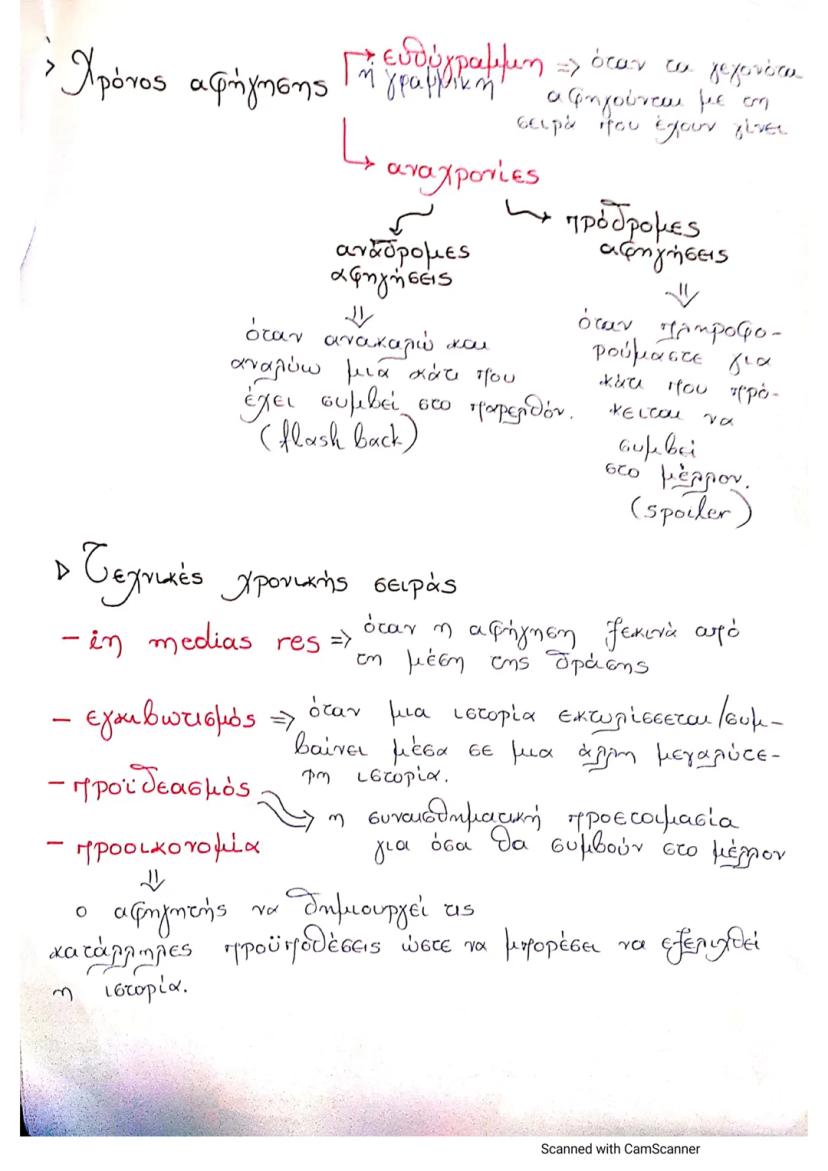 > Χρόνος αφήγησης
ευθύγραμμη => όταν τα γεγονότα
ή γραμμική
αφηγούνται με τη
σειρά που έχουν γίνει
αναχρονίες
ανάδρομες
αφηγήσεις
όταν ανακαλώ και
αναλύω μια κάτι που
έχει συμβεί στο παρελθόν.
(flash back)
πρόδρομες
αφηγήσεις
όταν πληροφο-
ρούμαστε για
κάτι που πρό-
κειται να
συμβεί
στο μέλλον.
(spoiler)
Τεχνικές χρονικής σειράς
- in medias res => όταν η αφήγηση ξεκινά από
τη μέση της δράσης
- εγκιβωτισμός => όταν μια ιστορία εκτυλίσσεται/συμ-
βαίνει μέσα σε μια άλλη μεγαλύτε-
ρη ιστορία.
- προϊδεασμός
η συναισθηματική προετοιμασία
για όσα θα συμβούν στο μέλλον
- προοικονομία
ο αφηγητής να δημιουργεί τις
κατάλληλες προϋποθέσεις ώστε να μπορέσει να εξελιχθεί
η ιστορία.
Scanned with CamScanner